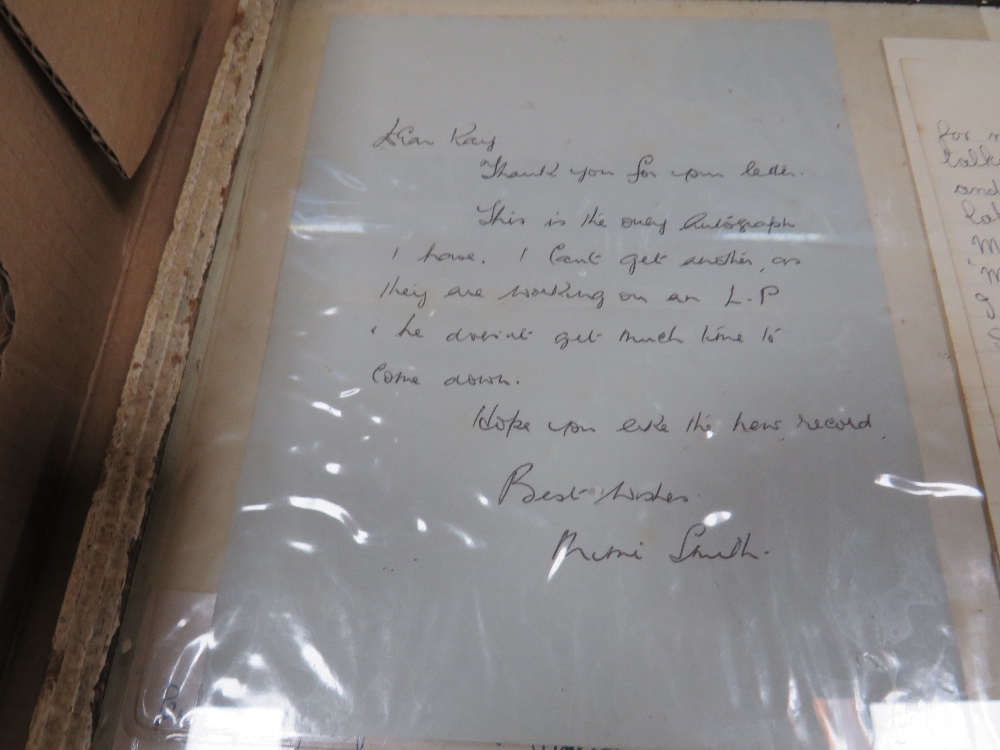 Dear Ray
Thank you for your letter.
This is the only Autograph
I have. I Can't get another, as
they are working on an L.P
& he doesn't get much time to
Come down.
Hope you like the new record.
Best Wishes.
Mimi Smith.
for
talk
and